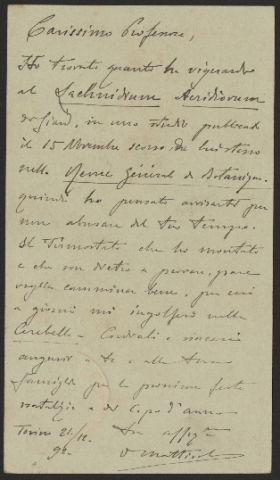 Carissimo Professore,
Ho trovato quanto ha riguardo
al Lachnidium Acridiorum
de Giard, in uno studio pubblicato
il 15 Novembre scorso da
nella Revue Général de Botanique.
quindi ho pensato avvisarti per
non abusare del tuo tempo.
Il che ho montato
e che son dietro a provare, pare
voglia camminar bene, per cui
a giorni mi ingolferò nella
Cordiali e sinceri
auguri a te e alla tua
famiglia per le prossime feste
natalizie e del capo d'anno
Torino 21/12 tuo affezt
92 O Mattirolo